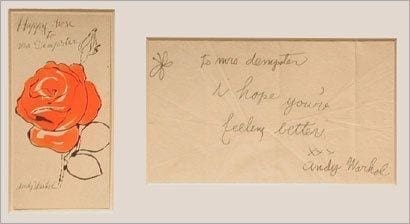 Happy rose
to
mrs Dempster
Andy Warhol
to mrs dempster
I hope you're
feeling better
xxx
Andy Warhol